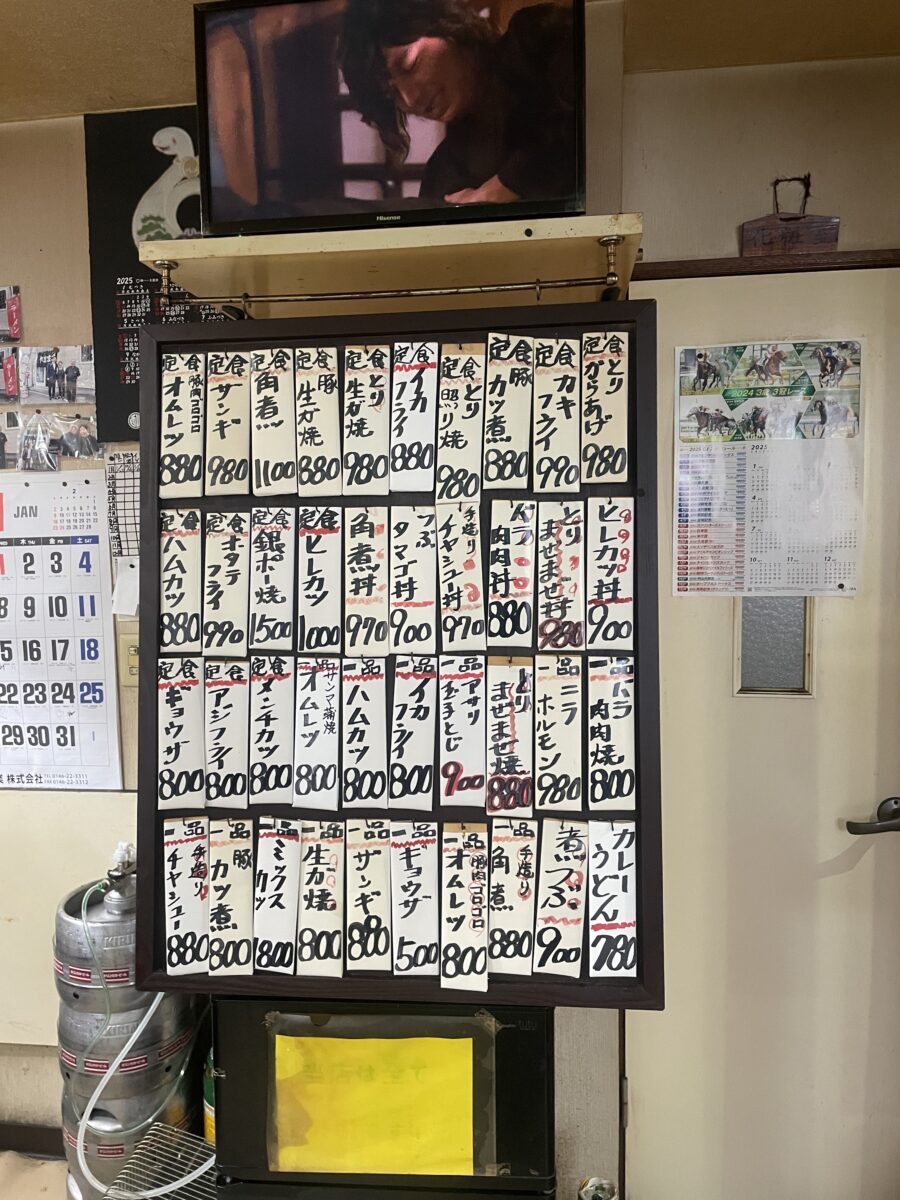 Hisense
化粧室
2025
ラーメン
ラーメン
定食 とり からあげ 980
定食 カキフライ 990
定食 豚 カツ煮 880
定食 とり 照り焼 980
定食 イカフライ 880
定食 とり 生ガ焼 980
定食 豚 生ガ焼 880
定食 角煮 1100
定食 ザンギ 980
定食 豚肉ゴロゴロ オムレツ 880
ヒレカツ丼 900
とり まぜまぜ丼 980
肉肉丼 880
手造り チャシュー丼 970
つぶ タマゴ丼 900
角煮丼 970
定食 ヒレカツ 1000
定食 銀ポー焼 1500
定食 ホタテフライ 990
定食 ハムカツ 880
一品 バラ 肉肉焼 800
一品 ニラ ホルモン 980
とり まぜまぜ焼 880
一品 アサリ 玉子とじ 900
一品 イカフライ 800
一品 ハムカツ 800
一品 サンマ蒲焼 オムレツ 800
定食 メンチカツ 800
定食 アジフライ 800
定食 ギョウザ 800
カレーうどん 780
煮つぶ 900
一品 手造り 角煮 880
一品 豚肉ゴロゴロ オムレツ 800
一品 ギョウザ 500
一品 ザンギ 800
一品 生ガ焼 800
一品 ミックスカツ 800
一品 豚 カツ煮 800
一品 手造り チャシュー 880
2024 3歳 3冠レース
2025
JAN
木 金 土
2 3 4
8 9 10 11
15 16 17 18
22 23 24 25
29 30 31
株式会社
TEL 0146-22-3311
FAX 0146-22-3312
KIRIN
KIRIN